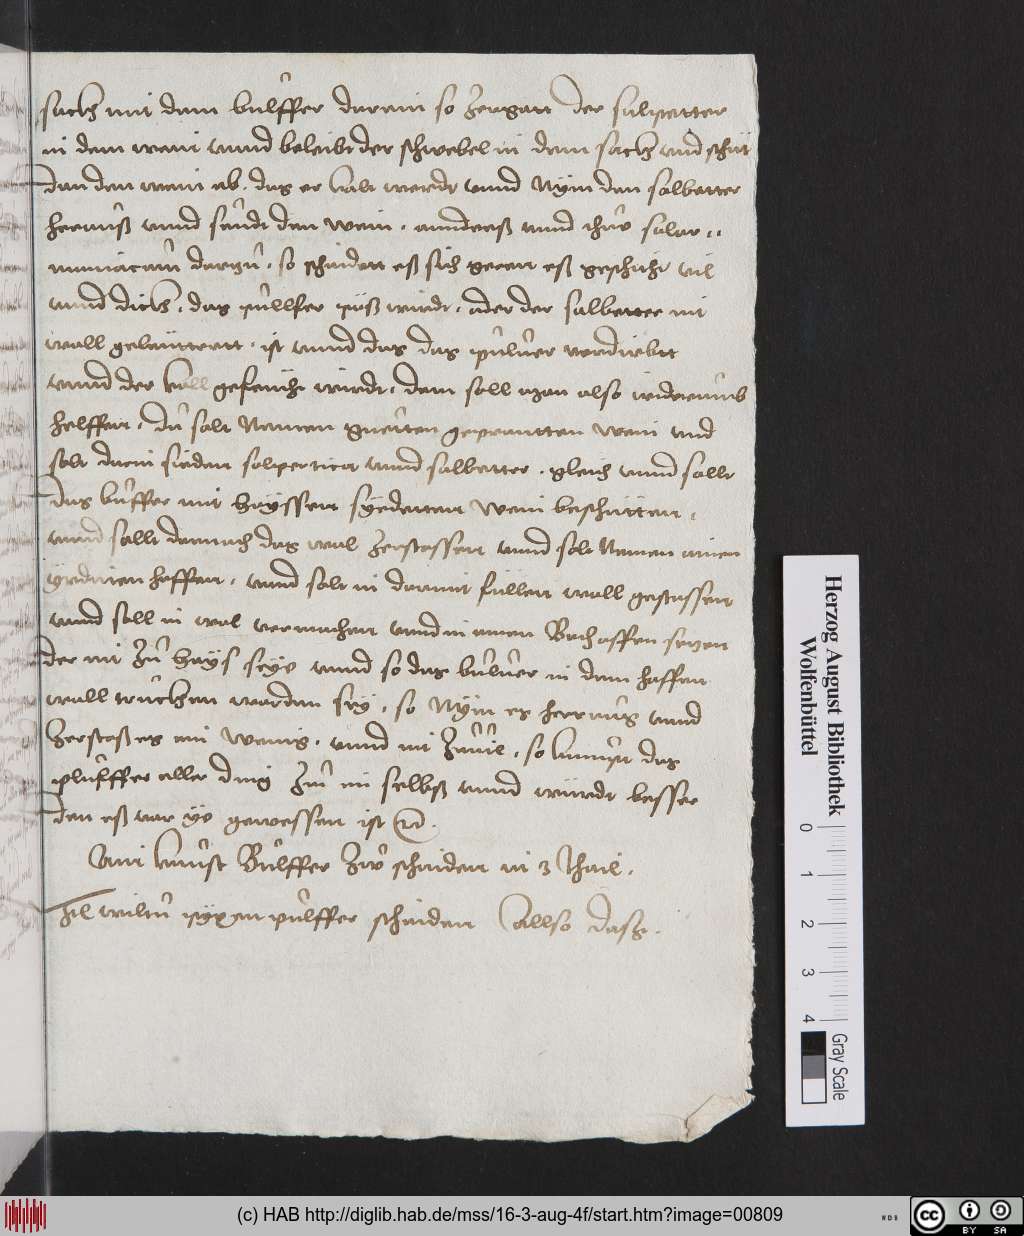 sackh mit dem bulffer darein so zergatt der salpetter
in dem wein vnnd beleibt der schwebel in dem sackh vnd schüt
dan den wein ab, das er kalt werdt vnnd Nym den salbetter
herauß vnnd seudt den wein, annderß vnnd thuo salar„
muniacum darzu, so schaiden eß sich geren eß geschicht vil
vnnd dickh, das püllfer pöß wirdt, oder der salbetter nit
wall geleuttertt, ist vnnd das das puluer verdirbtt
vnnd der koll gefeücht wirdt, dem soll man also widerumb
helffen, du salt Nemen guetten geprantten wein vnd
salt darin sieden salpertica vnnd salbetter, gleich vnnd sallt
das bulffer mit hayssen syedenten wein beschütten,
vnnd sallt darnach das wol zerstossen vnnd solt Nemen ainen
yrdninen haffen, vnnd solt in darmit füllen wall gestossen
vnnd soll in wol vermachen vnnd in ainen Bachoffen setzen
der nit zu hays seye vnnd so das buluer in dem haffen
wall truckhen warden sey, so Nym es heraus vnnd
zerstoß es ein wenig, vnnd nit zuuil, so kumpt das
pluffer aller ding zu im selbß vnnd würdt besser
den eß vor ye gewessen ist
Ain kunst Bulffer zuo schaiden in 3 thail,
Jtl wiltu pyxen pulffer schaiden allso dasz.
Herzog August Bibliothek
Wolfenbüttel
0 1 2 3 4
Gray Scale
(c) HAB http://diglib.hab.de/mss/16-3-aug-4f/start.htm?image=00809
cc BY SA